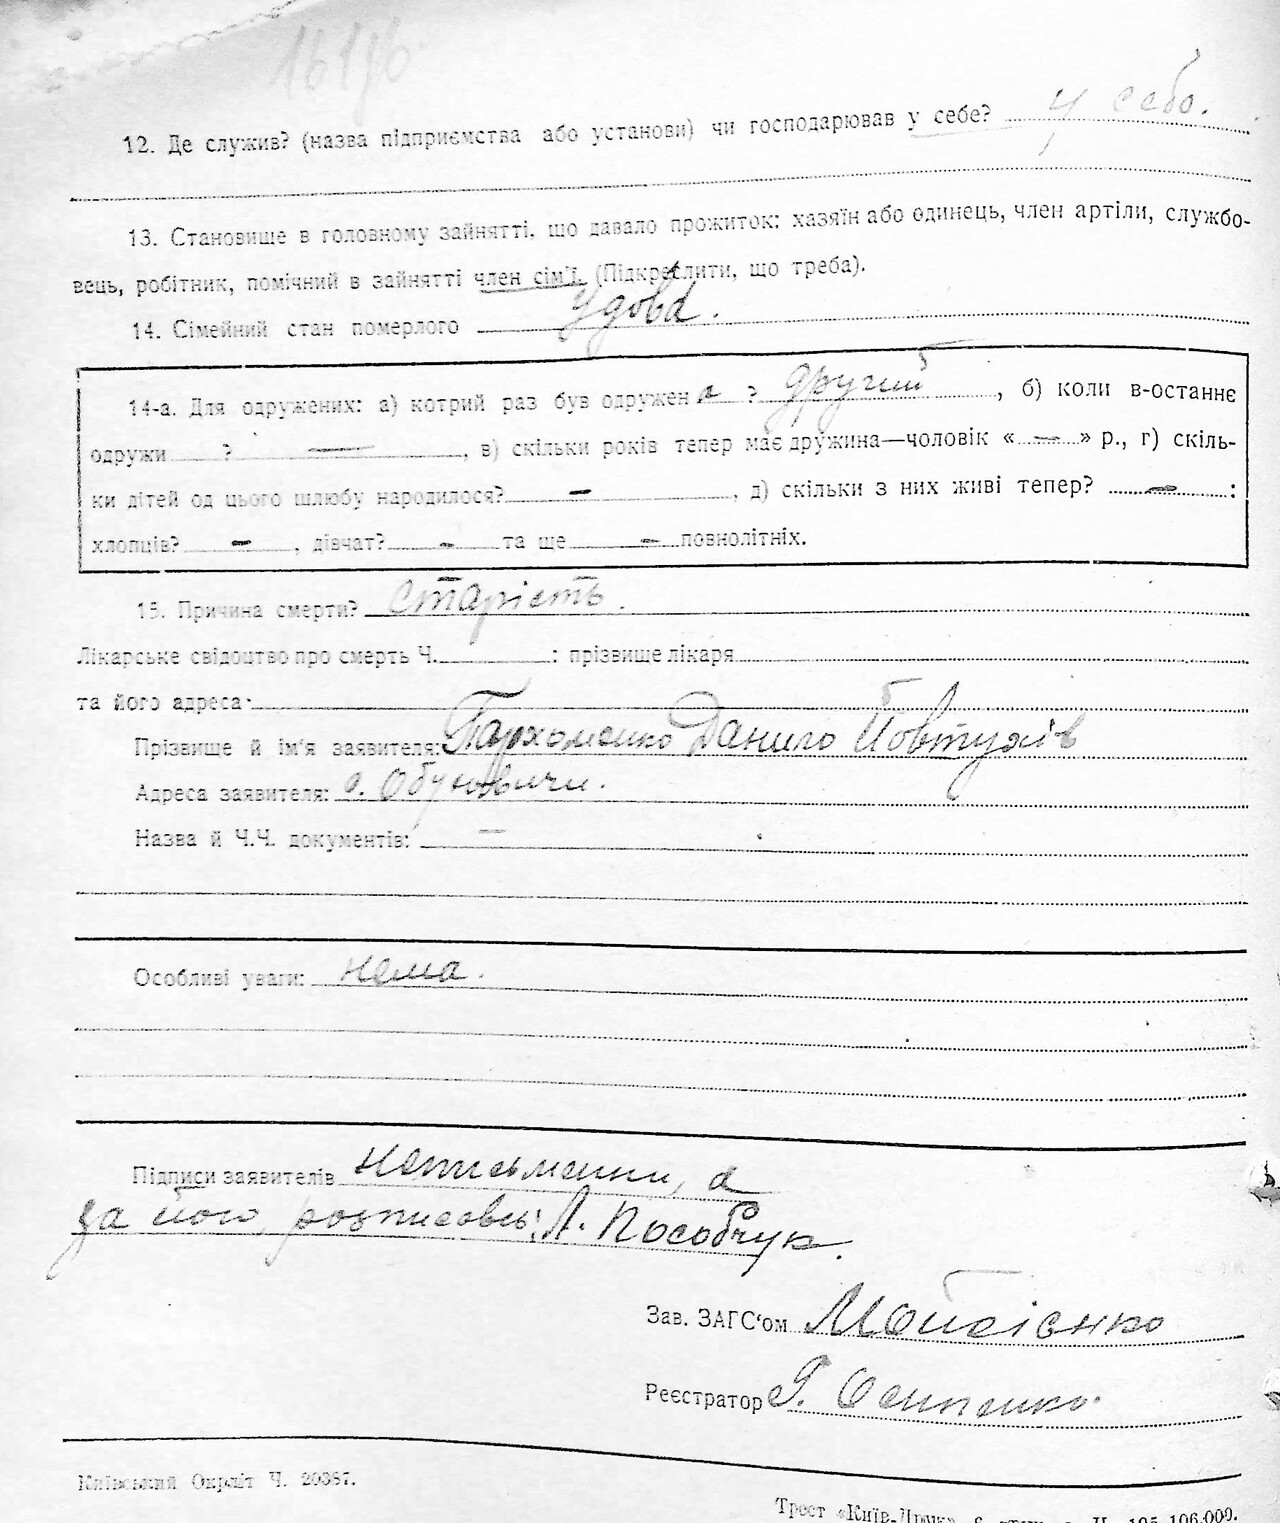 12. Де служив? (назва підприємства або установи) чи господарював у себе? у себе.
13. Становище в головному зайнятті, що давало прожиток: хазяїн або одинець, член артіли, службо-
вець, робітник, помічний в зайнятті член сім'ї. (Підкреслити, що треба).
14. Сімейний стан померлого Удова.
14-а. Для одружених: а) котрий раз був одружен а ? другий, б) коли в-останнє
одружи ? —, в) скільки років тепер має дружина—чоловік « — » р., г) скіль-
ки дітей од цього шлюбу народилося? —, д) скільки з них живі тепер? — :
хлопців? —, дівчат? — та ще — повнолітніх.
15. Причина смерти? старість.
Лікарське свідоцтво про смерть Ч. : прізвище лікаря
та його адреса:
Прізвище й ім'я заявителя: Пархоменко Данило Йовтухів
Адреса заявителя: с. Обуховичи.
Назва й Ч.Ч. документів: —
Особливі уваги: нема.
Підписи заявителів неписьменни, а
за його розписовсь: Пособчук.
Зав. ЗАГС'ом
Реєстратор Осипенко.
Київський Окрліт Ч. 20367.
Трест «Київ-Друк» 105-106.000.